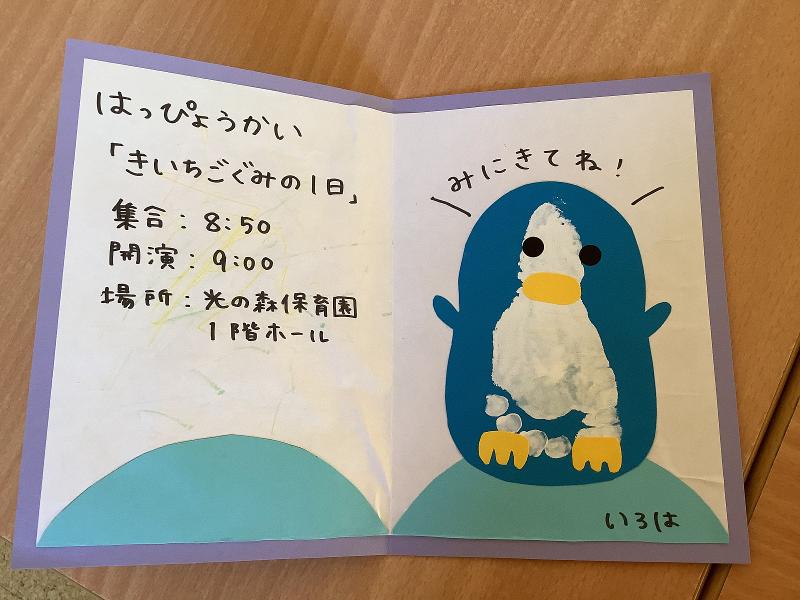 はっぴょうかい
「きいちごぐみの1日」
集合：8:50
開演：9:00
場所：光の森保育園
1階ホール
みにきてね！
いろは